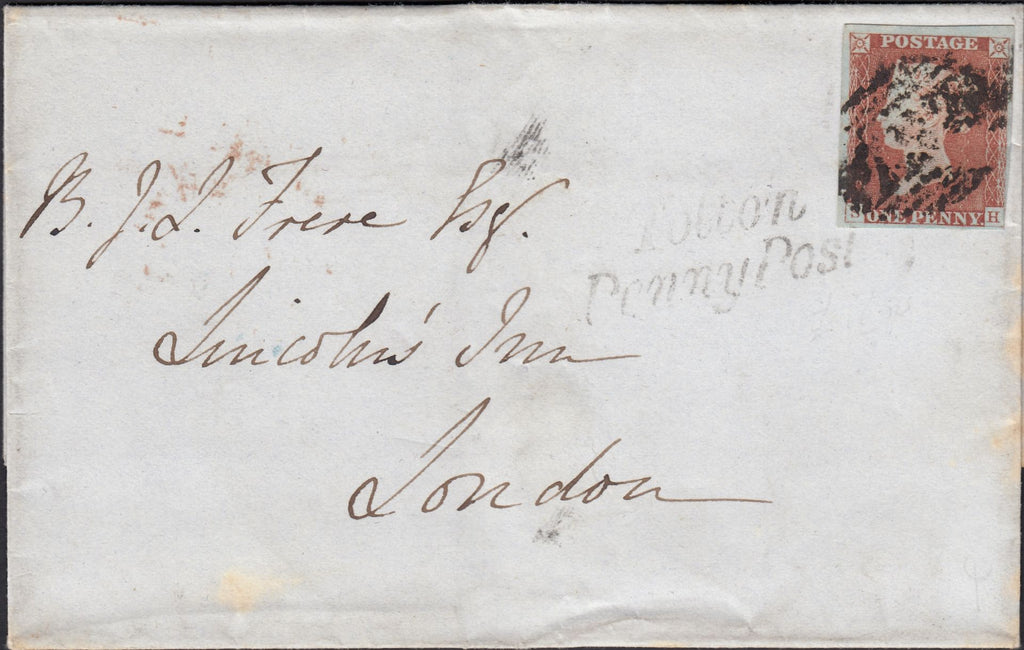 POSTAGE
S ONE PENNY. H
B. J. L. Frere Esq.
Potton
Penny Post
Lincoln's Inn
London